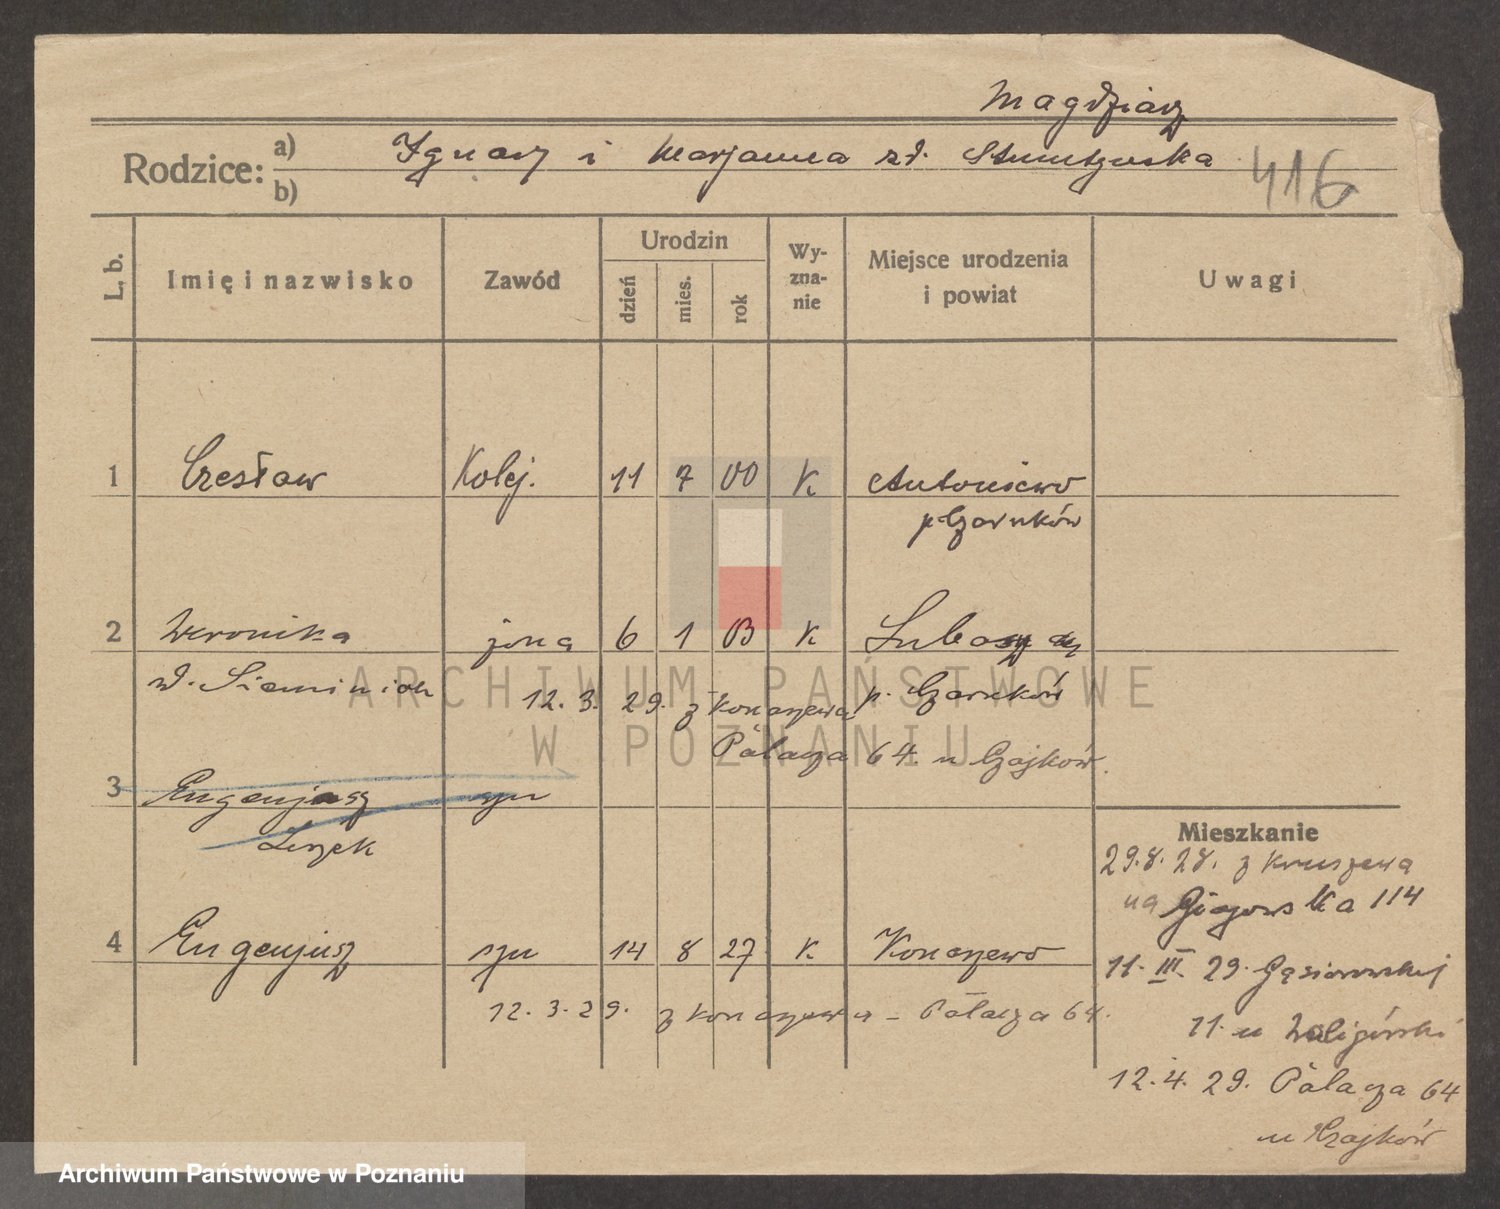 Magdziarz
Rodzice: a) Ignacy i Marjanna zd.
b)
416
L. b.
Imię i nazwisko
Zawód
Urodzin
dzień
mies.
rok
Wy-
zna-
nie
Miejsce urodzenia
i powiat
Uwagi
1 Czesław Kolej. 11 7 00 K Antoniewo
p. Czarnków
2 Weronika żona 6 1 03 K Lubasz
zd. Sieminiak p. Czarnków
12. 3. 29. z Konarzewa
Palacza 64 u Czajków.
3 Eugenjusz syn
Leszek
4 Eugenjusz syn 14 8 27 K Konarzewo
12. 3. 29. z Konarzewa - Palacza 64.
Mieszkanie
29.8.28. z Kruszewa
na 114
11. III. 29. Gąsiorowskich
11. u Waligórski
12. 4. 29. Palacza 64
u Czajków
ARCHIWUM PAŃSTWOWE
W POZNANIU
Archiwum Państwowe w Poznaniu